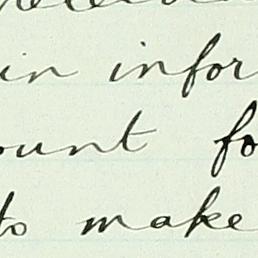 in infor
ount fo
to make